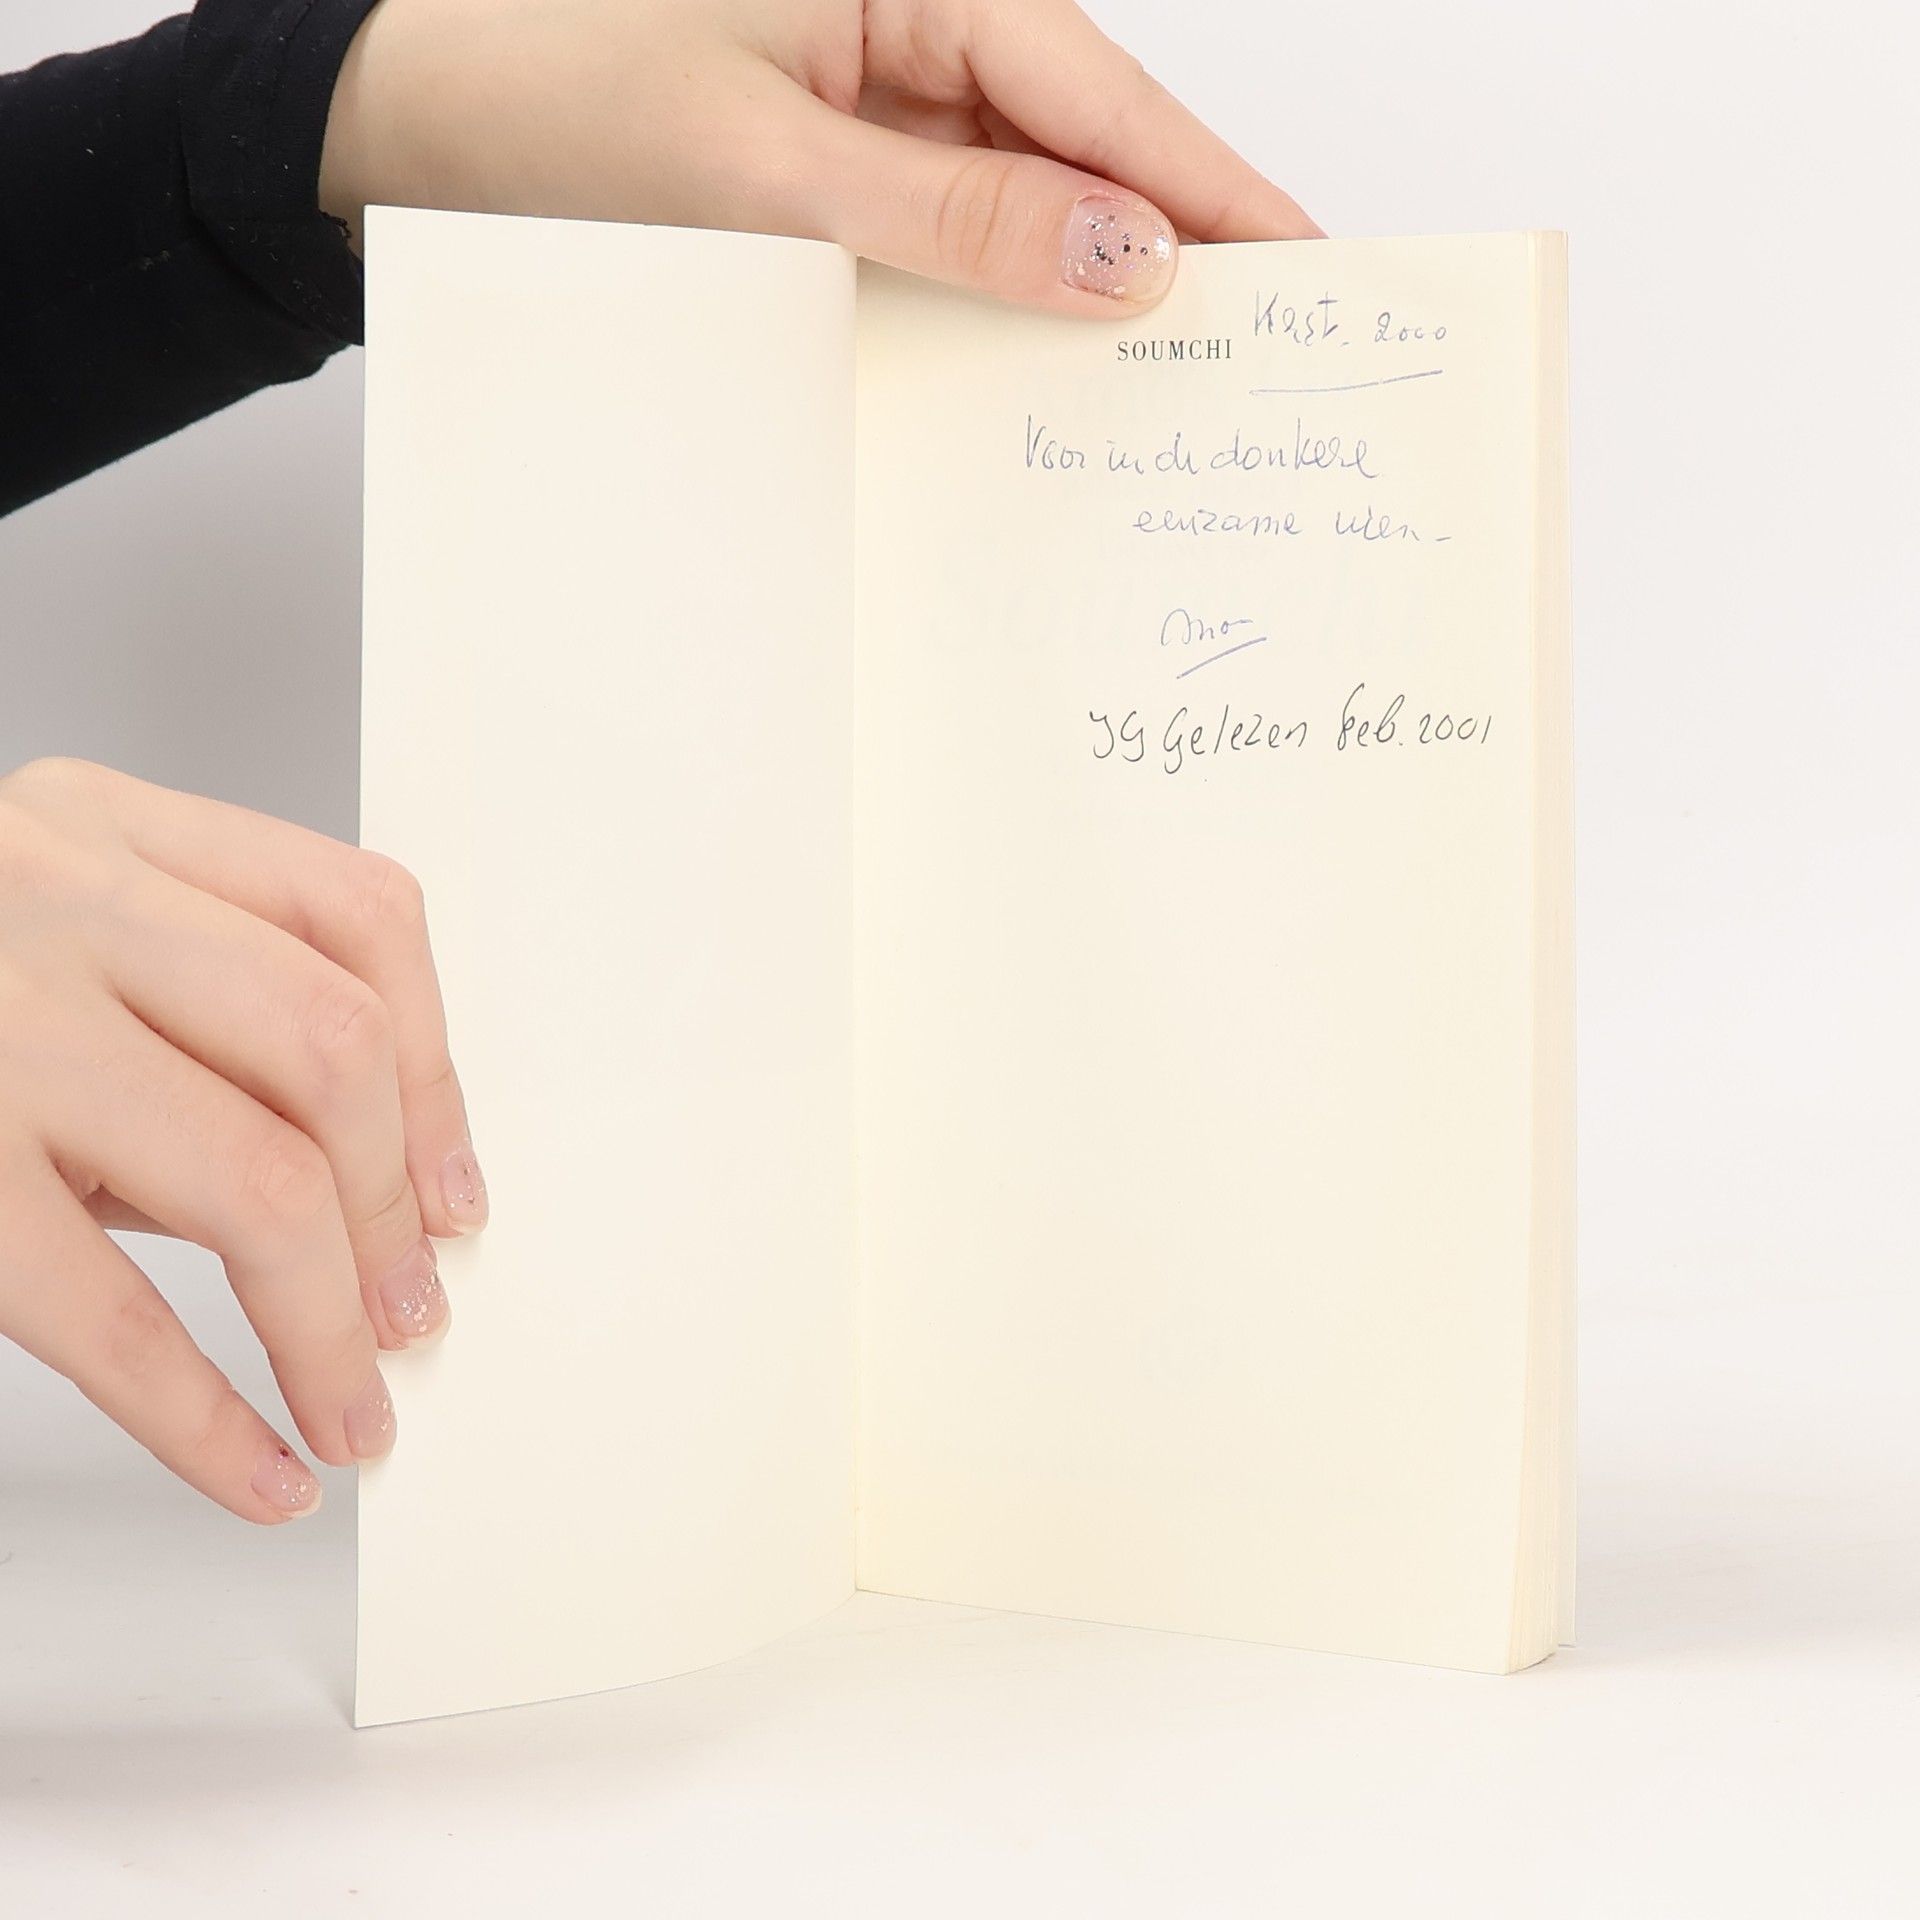 SOUMCHI
Kerst. 2000
Voor in de donkere
eenzame uren -
YG Gelezen feb. 2001